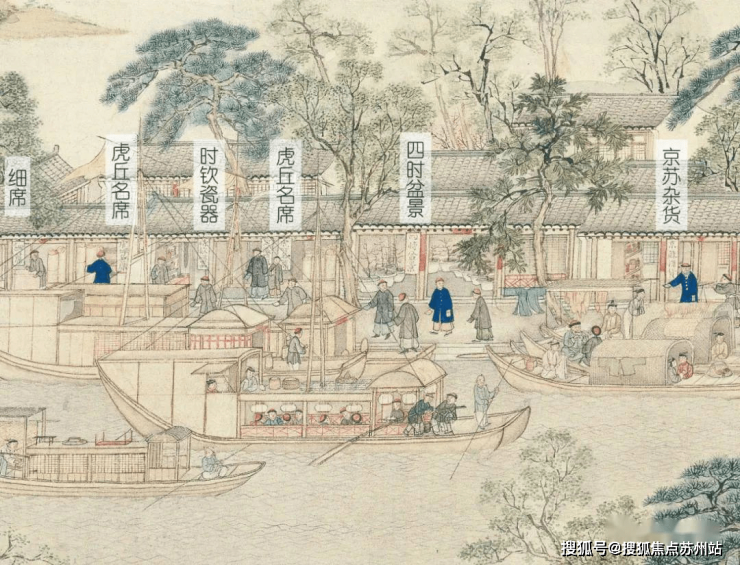 细席
虎丘名席
时钦瓷器
虎丘名席
四时盆景
京苏杂货
搜狐号@搜狐焦点苏州站